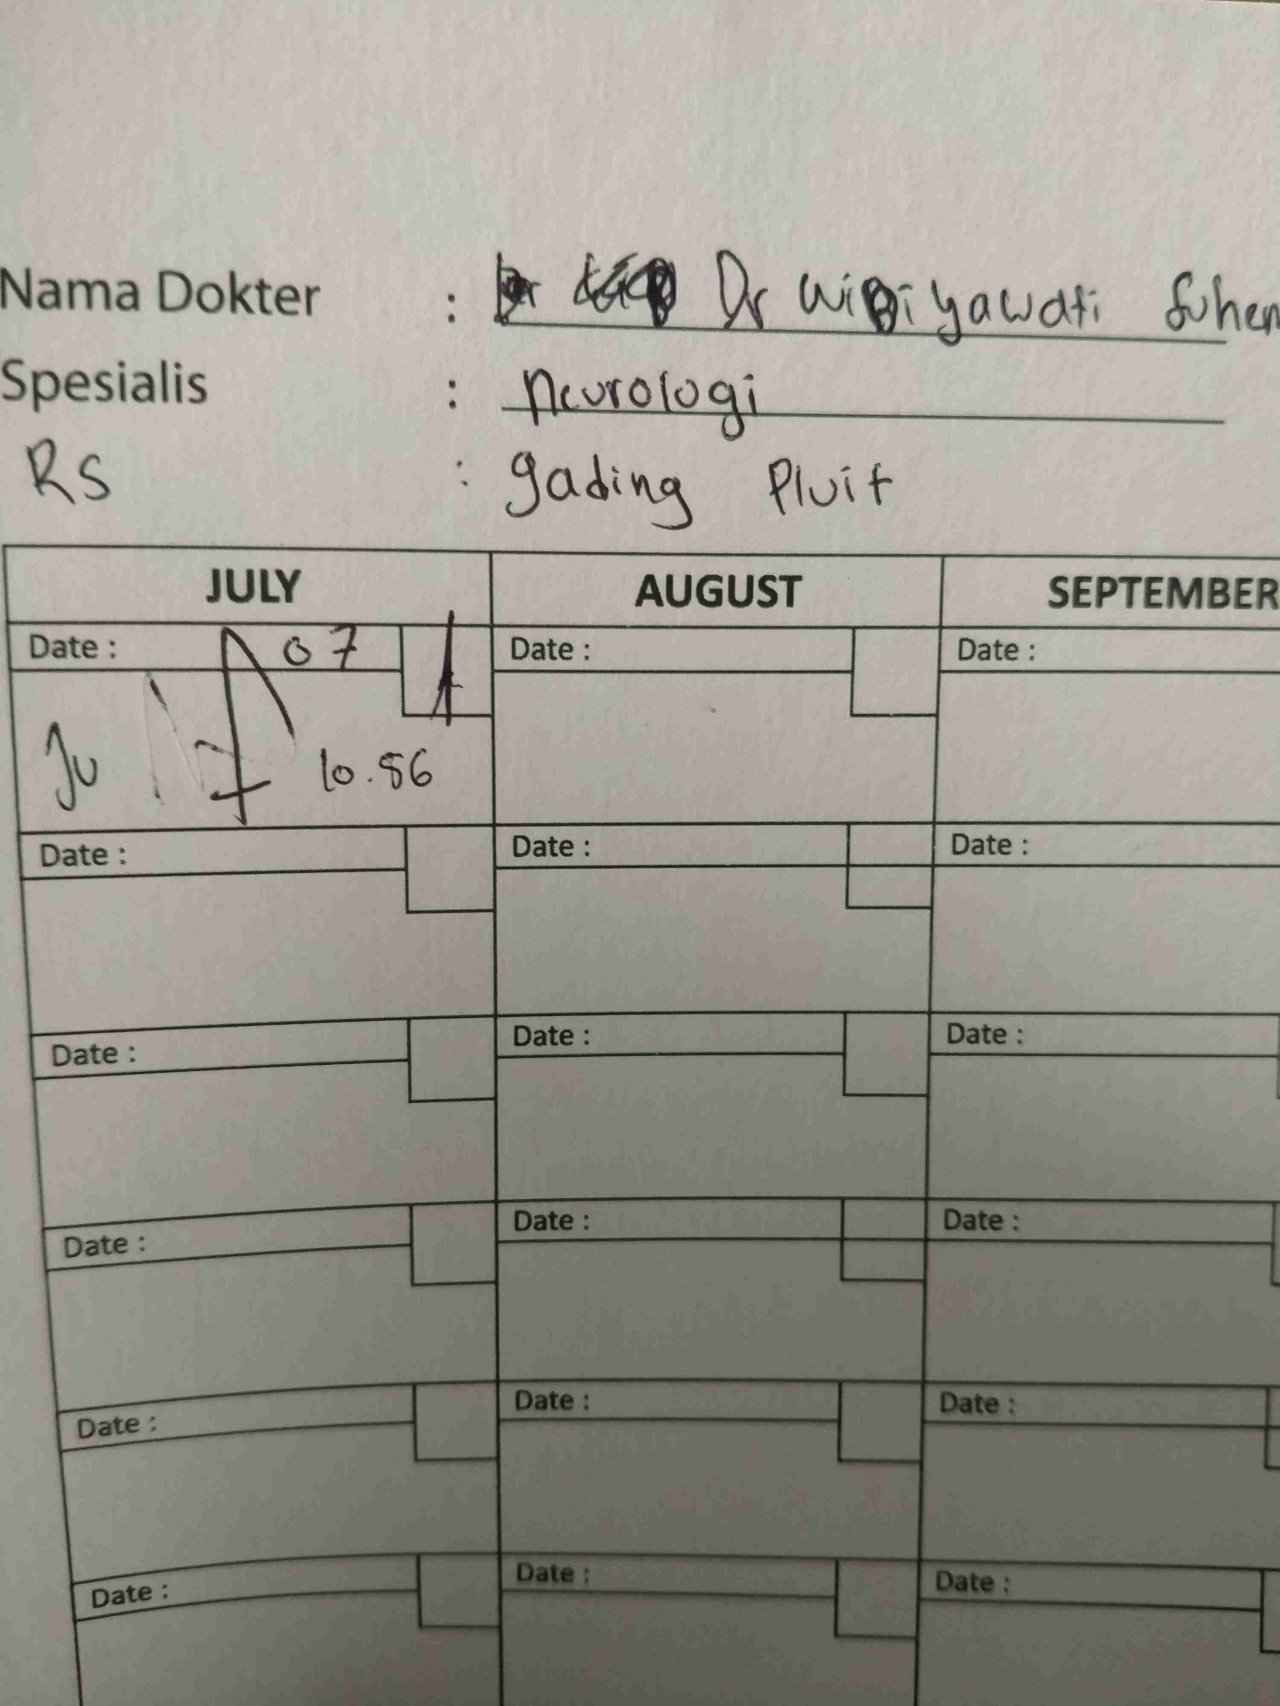 Nama Dokter : Dr Wibiyawati
Spesialis : Neurologi
RS : gading Pluit
JULY AUGUST SEPTEMBER
Date : 07 Date : Date :
10.56
Date : Date : Date :
Date : Date : Date :
Date : Date : Date :
Date : Date : Date :
Date : Date : Date :